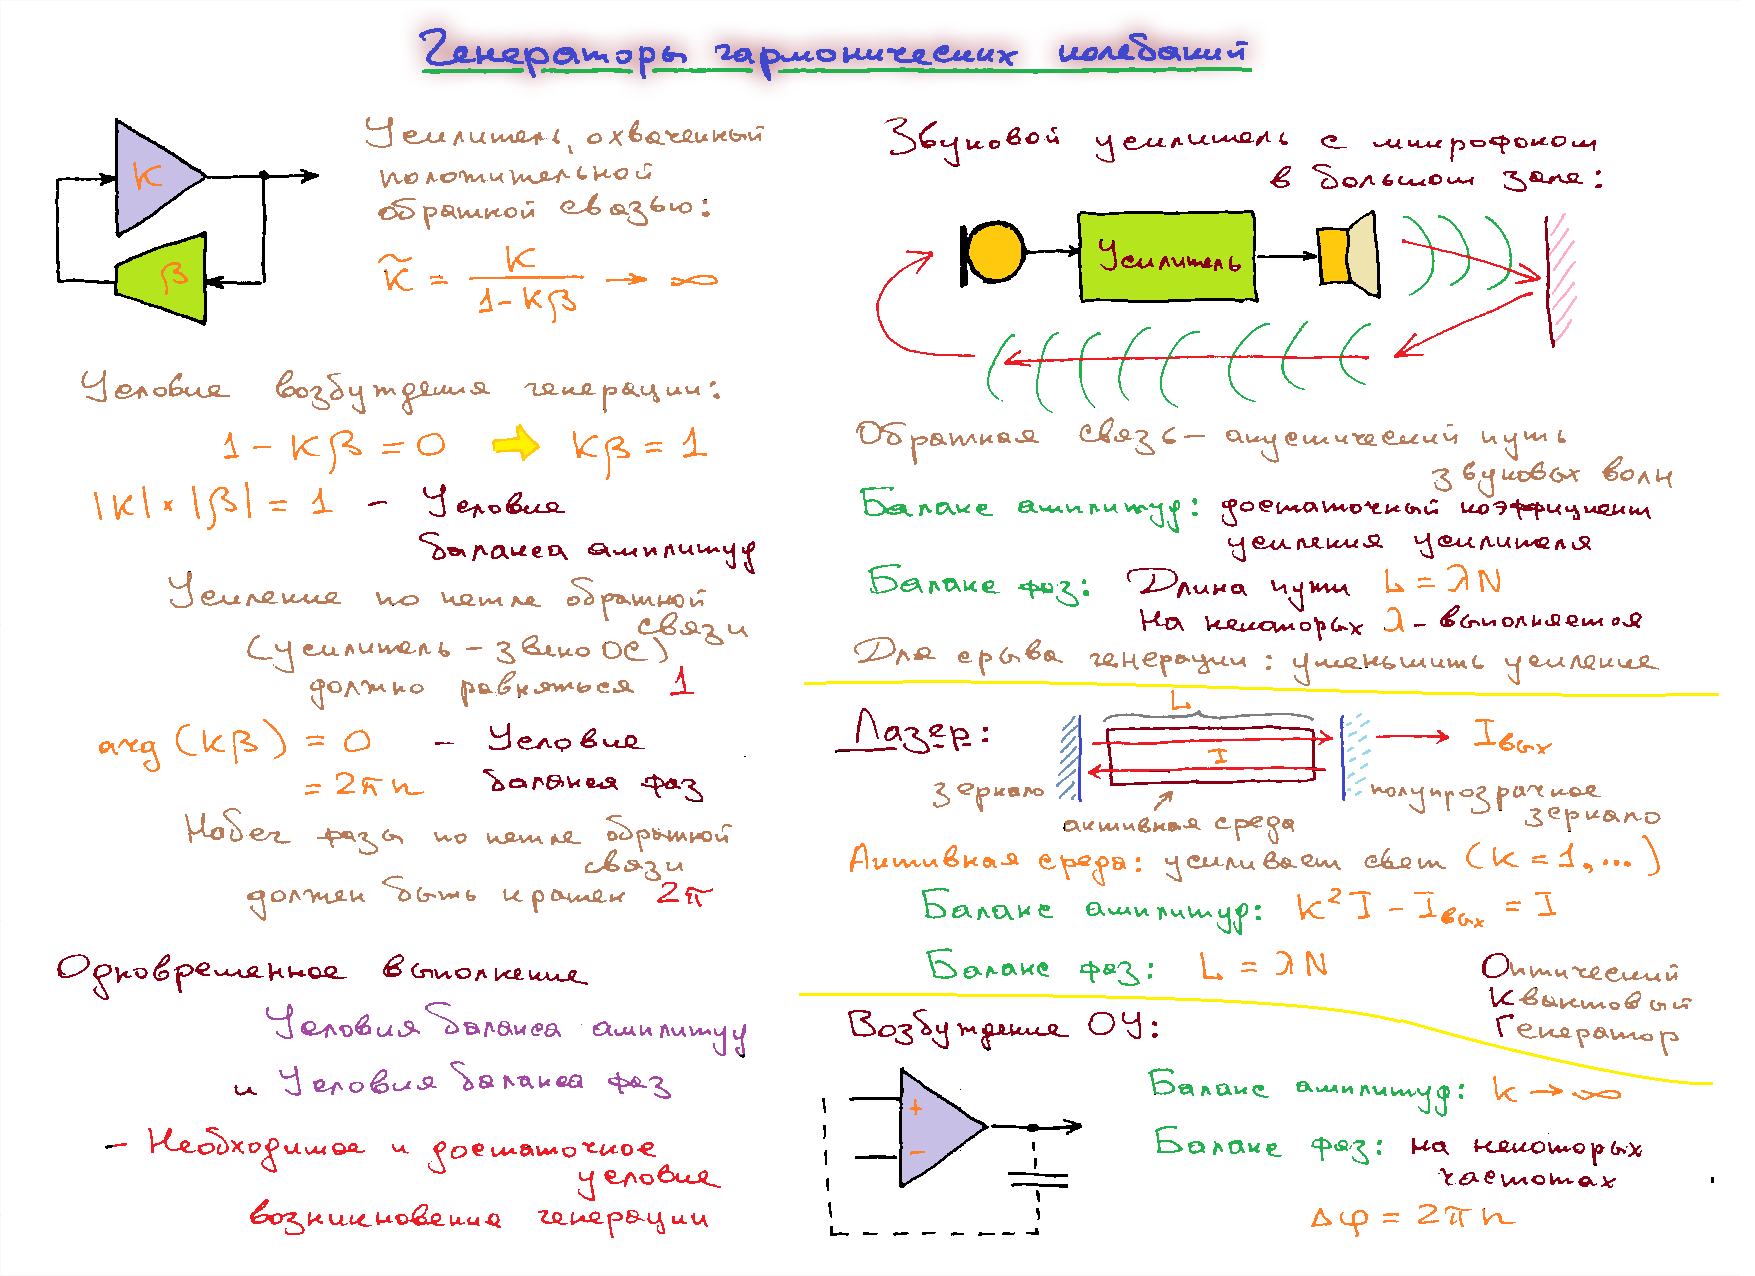 Генераторы гармонических колебаний
K
β
Усилитель, охваченный
положительной
обратной связью:
K̃ = K / (1 - Kβ) → ∞
Условие возбуждения генерации:
1 - Kβ = 0 ⇒ Kβ = 1
|K| × |β| = 1 - Условие
баланса амплитуд
Усиление по петле обратной
связи
(усилитель - звено ОС)
должно равняться 1
arg (Kβ) = 0 - Условие
= 2πn баланса фаз
Набег фазы по петле обратной
связи
должен быть кратен 2π
Одновременное выполнение
Условия баланса амплитуд
и Условия баланса фаз
- Необходимое и достаточное
условие
возникновения генерации
Звуковой усилитель с микрофоном
в большом зале:
Усилитель
Обратная связь - акустический путь
звуковых волн
Баланс амплитуд: достаточный коэффициент
усиления усилителя
Баланс фаз: Длина пути L = λN
На некоторых λ - выполняется
Для срыва генерации: уменьшить усиление
Лазер:
L
I
Iвых
зеркало
полупрозрачное
зеркало
активная среда
Активная среда: усиливает свет (K = 1,...)
Баланс амплитуд: K²I - Iвых = I
Баланс фаз: L = λN
Оптический
Квантовый
Генератор
Возбуждение ОУ:
+
-
Баланс амплитуд: K → ∞
Баланс фаз: на некоторых
частотах
Δφ = 2πn